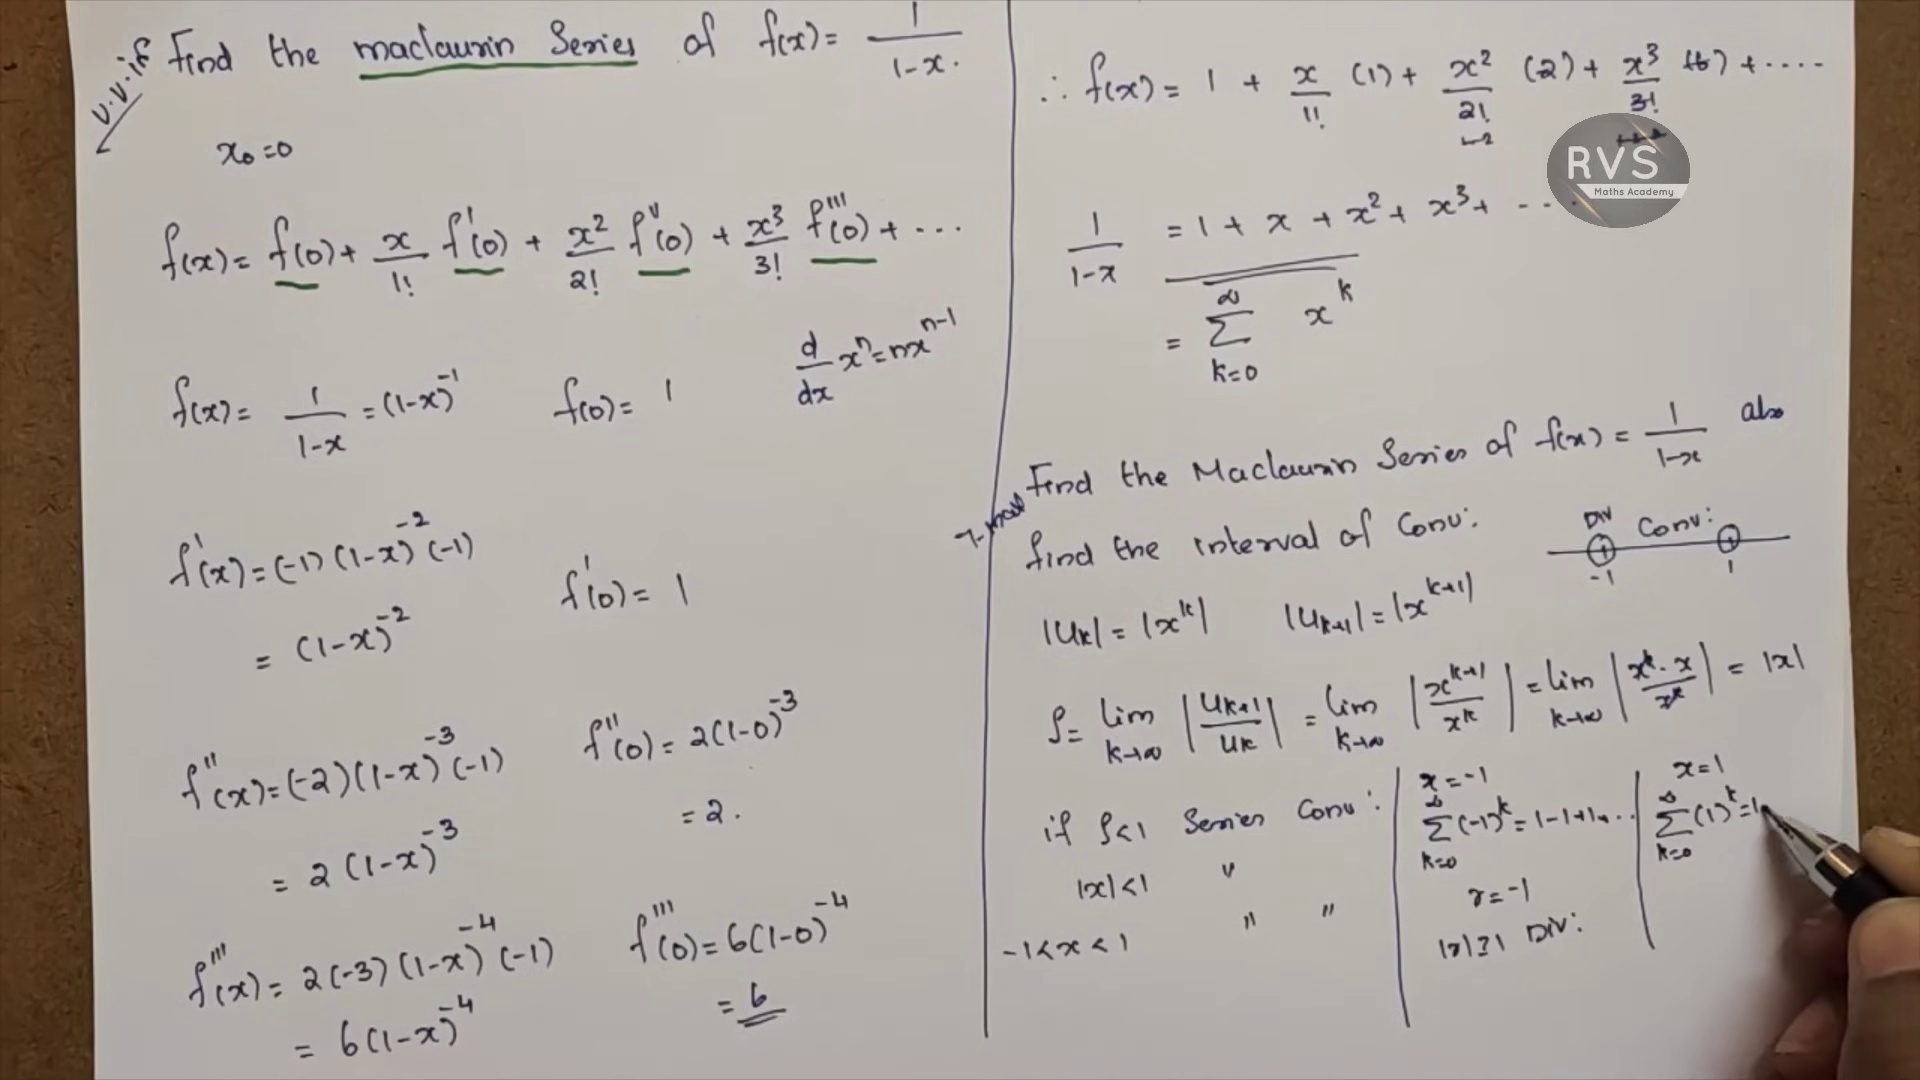 V.V.if
Find the maclaurin Series of f(x) = 1/(1-x).
x₀=0
f(x) = f(0) + x/1! f'(0) + x²/2! f''(0) + x³/3! f'''(0) + ...
f(x) = 1/(1-x) = (1-x)⁻¹ f(0) = 1 d/dx xⁿ = nxⁿ⁻¹
f'(x) = (-1)(1-x)⁻²(-1) f'(0) = 1
= (1-x)⁻²
f''(x) = (-2)(1-x)⁻³(-1) f''(0) = 2(1-0)⁻³
= 2(1-x)⁻³ = 2.
f'''(x) = 2(-3)(1-x)⁻⁴(-1) f'''(0) = 6(1-0)⁻⁴
= 6(1-x)⁻⁴ = 6
∴ f(x) = 1 + x/1! (1) + x²/2! (2) + x³/3! (6) + ....
RVS
Maths Academy
1/(1-x) = 1 + x + x² + x³ + ...
= ∞ Σ k=0 x^k
Find the Maclaurin Series of f(x) = 1/(1-x) also
find the interval of Conv:
Div Conv:
-1 1
|Uk| = |x^k| |Uk+1| = |x^(k+1)|
ρ = lim k→∞ |Uk+1/Uk| = lim k→∞ |x^(k+1)/x^k| = lim k→∞ |x^k·x/x^k| = |x|
if ρ<1 Series Conv:
|x|<1 "
-1<x<1 " "
x=-1
∞ Σ k=0 (-1)^k = 1-1+1+...
r=-1
|r|≥1 Div:
x=1
∞ Σ k=0 (1)^k = 1